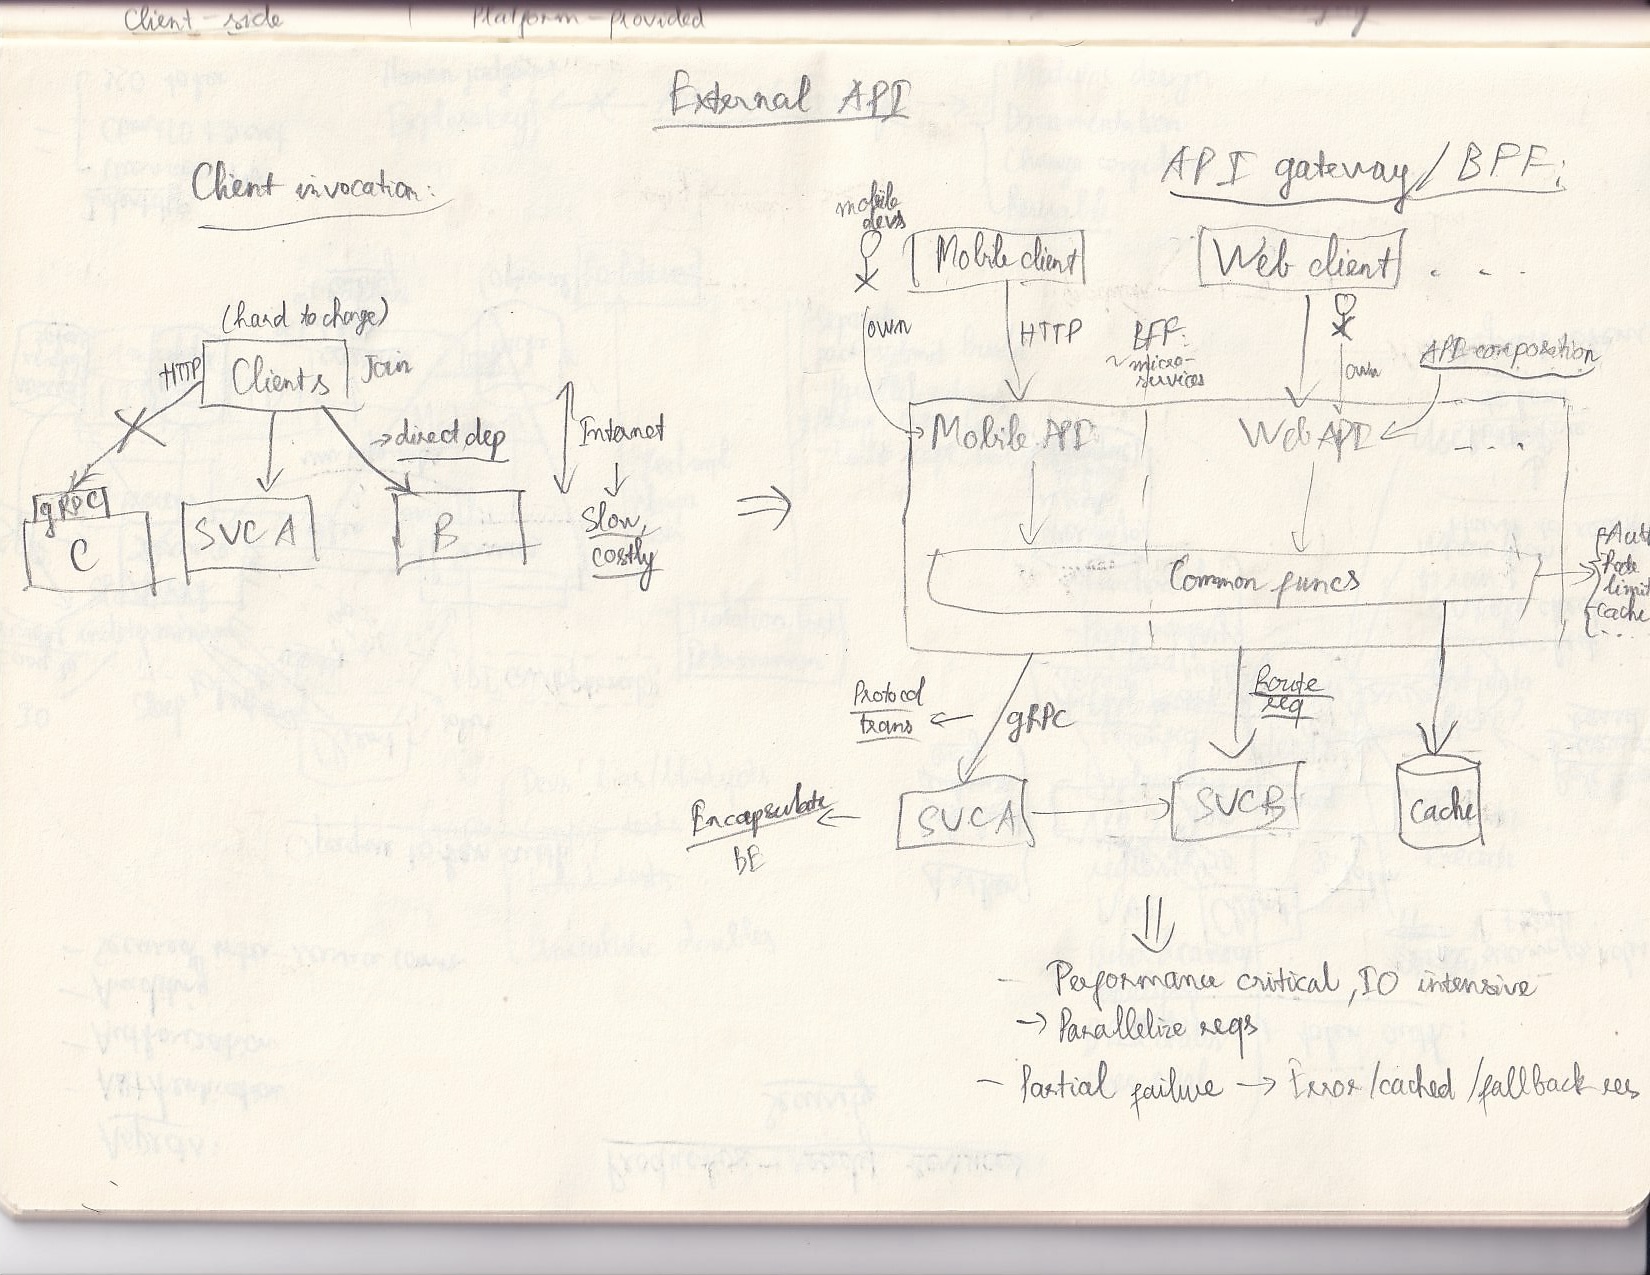 Client-side | Platform-provided
External API
Client invocation:
(hard to change)
HTTP
Clients
Join
→ direct dep
Internet
Slow,
costly
gRPC
C
SVC A
B
API gateway / BFF:
mobile
devs
Mobile client
Web client
. . .
own
HTTP
BFF:
~ micro-
services
own
API composition
Mobile API
Web API
. . .
Common funcs
Rate
limit
cache
...
Protocol
trans
gRPC
Route
req
Encapsulate
BE
SVC A
SVC B
Cache
- Performance critical, IO intensive
→ Parallelize reqs
- Partial failure → Error/cached/fallback res